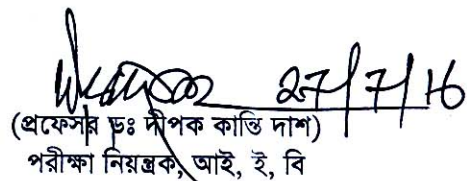 27/7/16
(প্রফেসর ডঃ দীপক কান্তি দাশ)
পরীক্ষা নিয়ন্ত্রক, আই, ই, বি